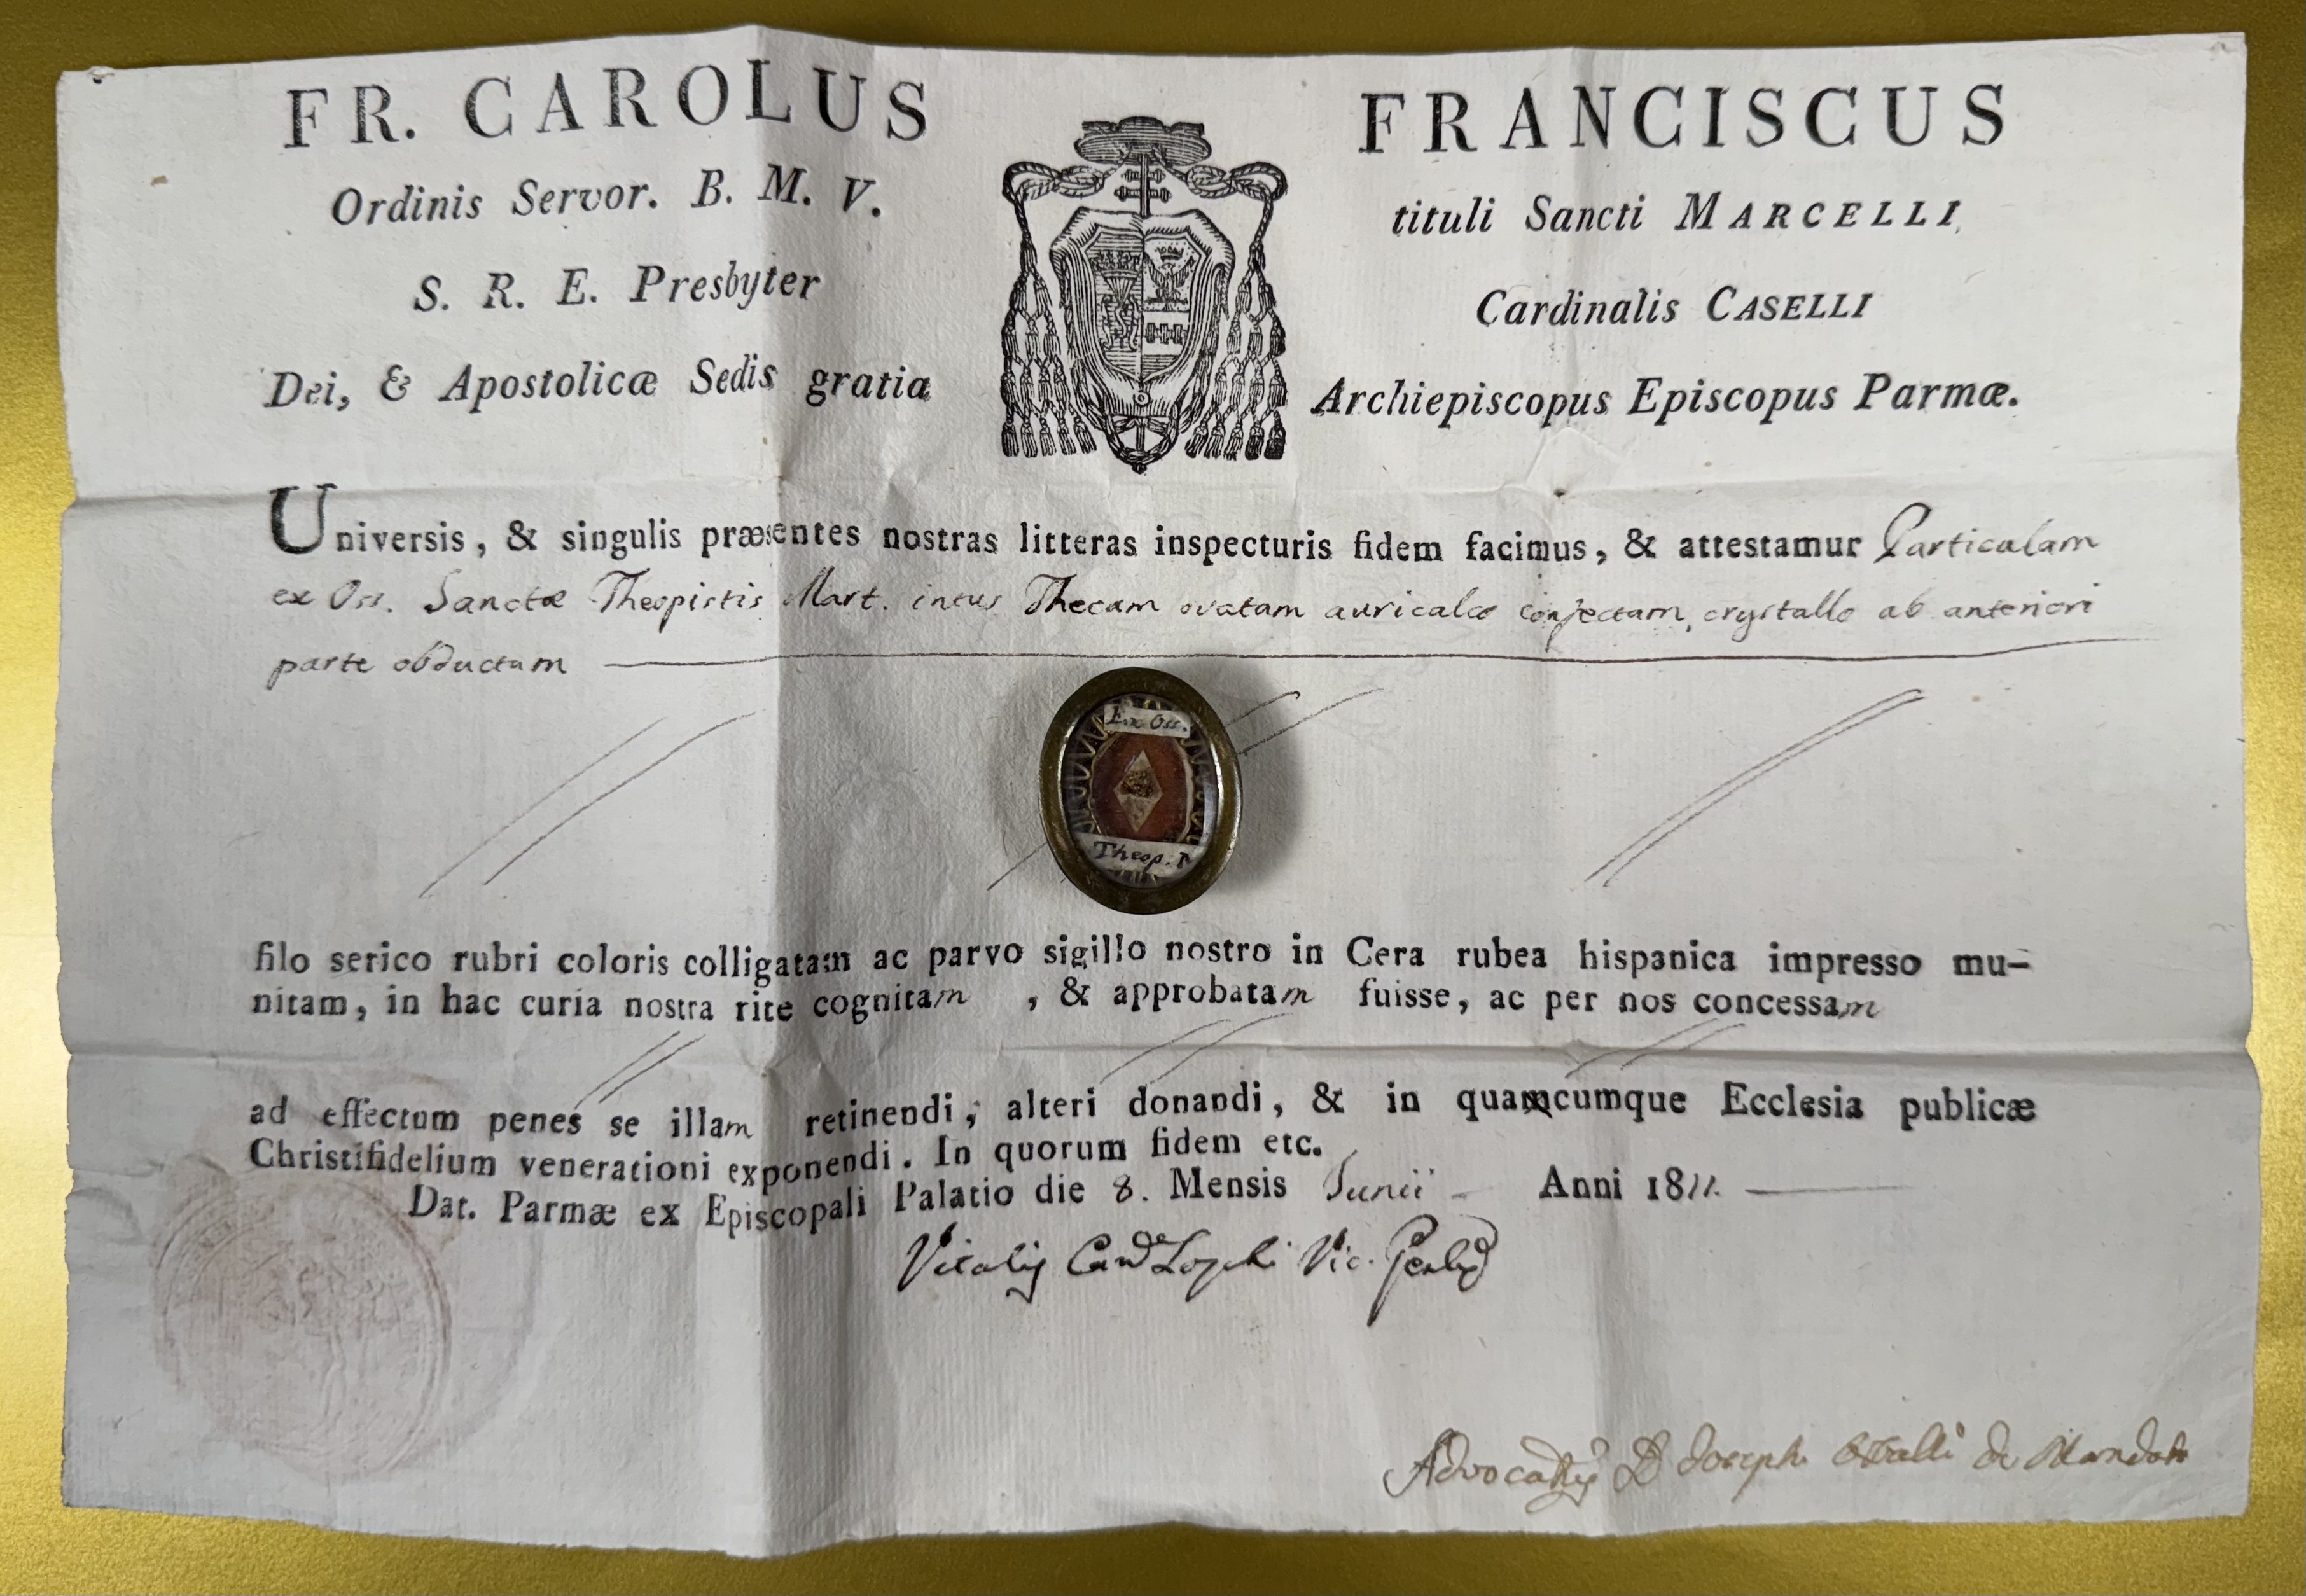 FR. CAROLUS FRANCISCUS
Ordinis Servor. B. M. V. tituli Sancti MARCELLI
S. R. E. Presbyter Cardinalis CASELLI
Dei, & Apostolicæ Sedis gratia Archiepiscopus Episcopus Parmæ.
Universis, & singulis præsentes nostras litteras inspecturis fidem facimus, & attestamur Particulam
ex Oss. Sanctæ Theopistis Mart. intus Thecam ovatam auricalco confectam, crystallo ab anteriori
parte obductam
Ex Oss.
Theop. M
filo serico rubri coloris colligatam ac parvo sigillo nostro in Cera rubea hispanica impresso mu-
nitam, in hac curia nostra rite cognitam , & approbatam fuisse, ac per nos concessam
ad effectum penes se illam retinendi, alteri donandi, & in quamcumque Ecclesia publicæ
Christifidelium venerationi exponendi. In quorum fidem etc.
Dat. Parmæ ex Episcopali Palatio die 8. Mensis Junii Anni 1811.
Vitalis Can. Loschi Vic. Genlis
Advocatus D Joseph de Mandato